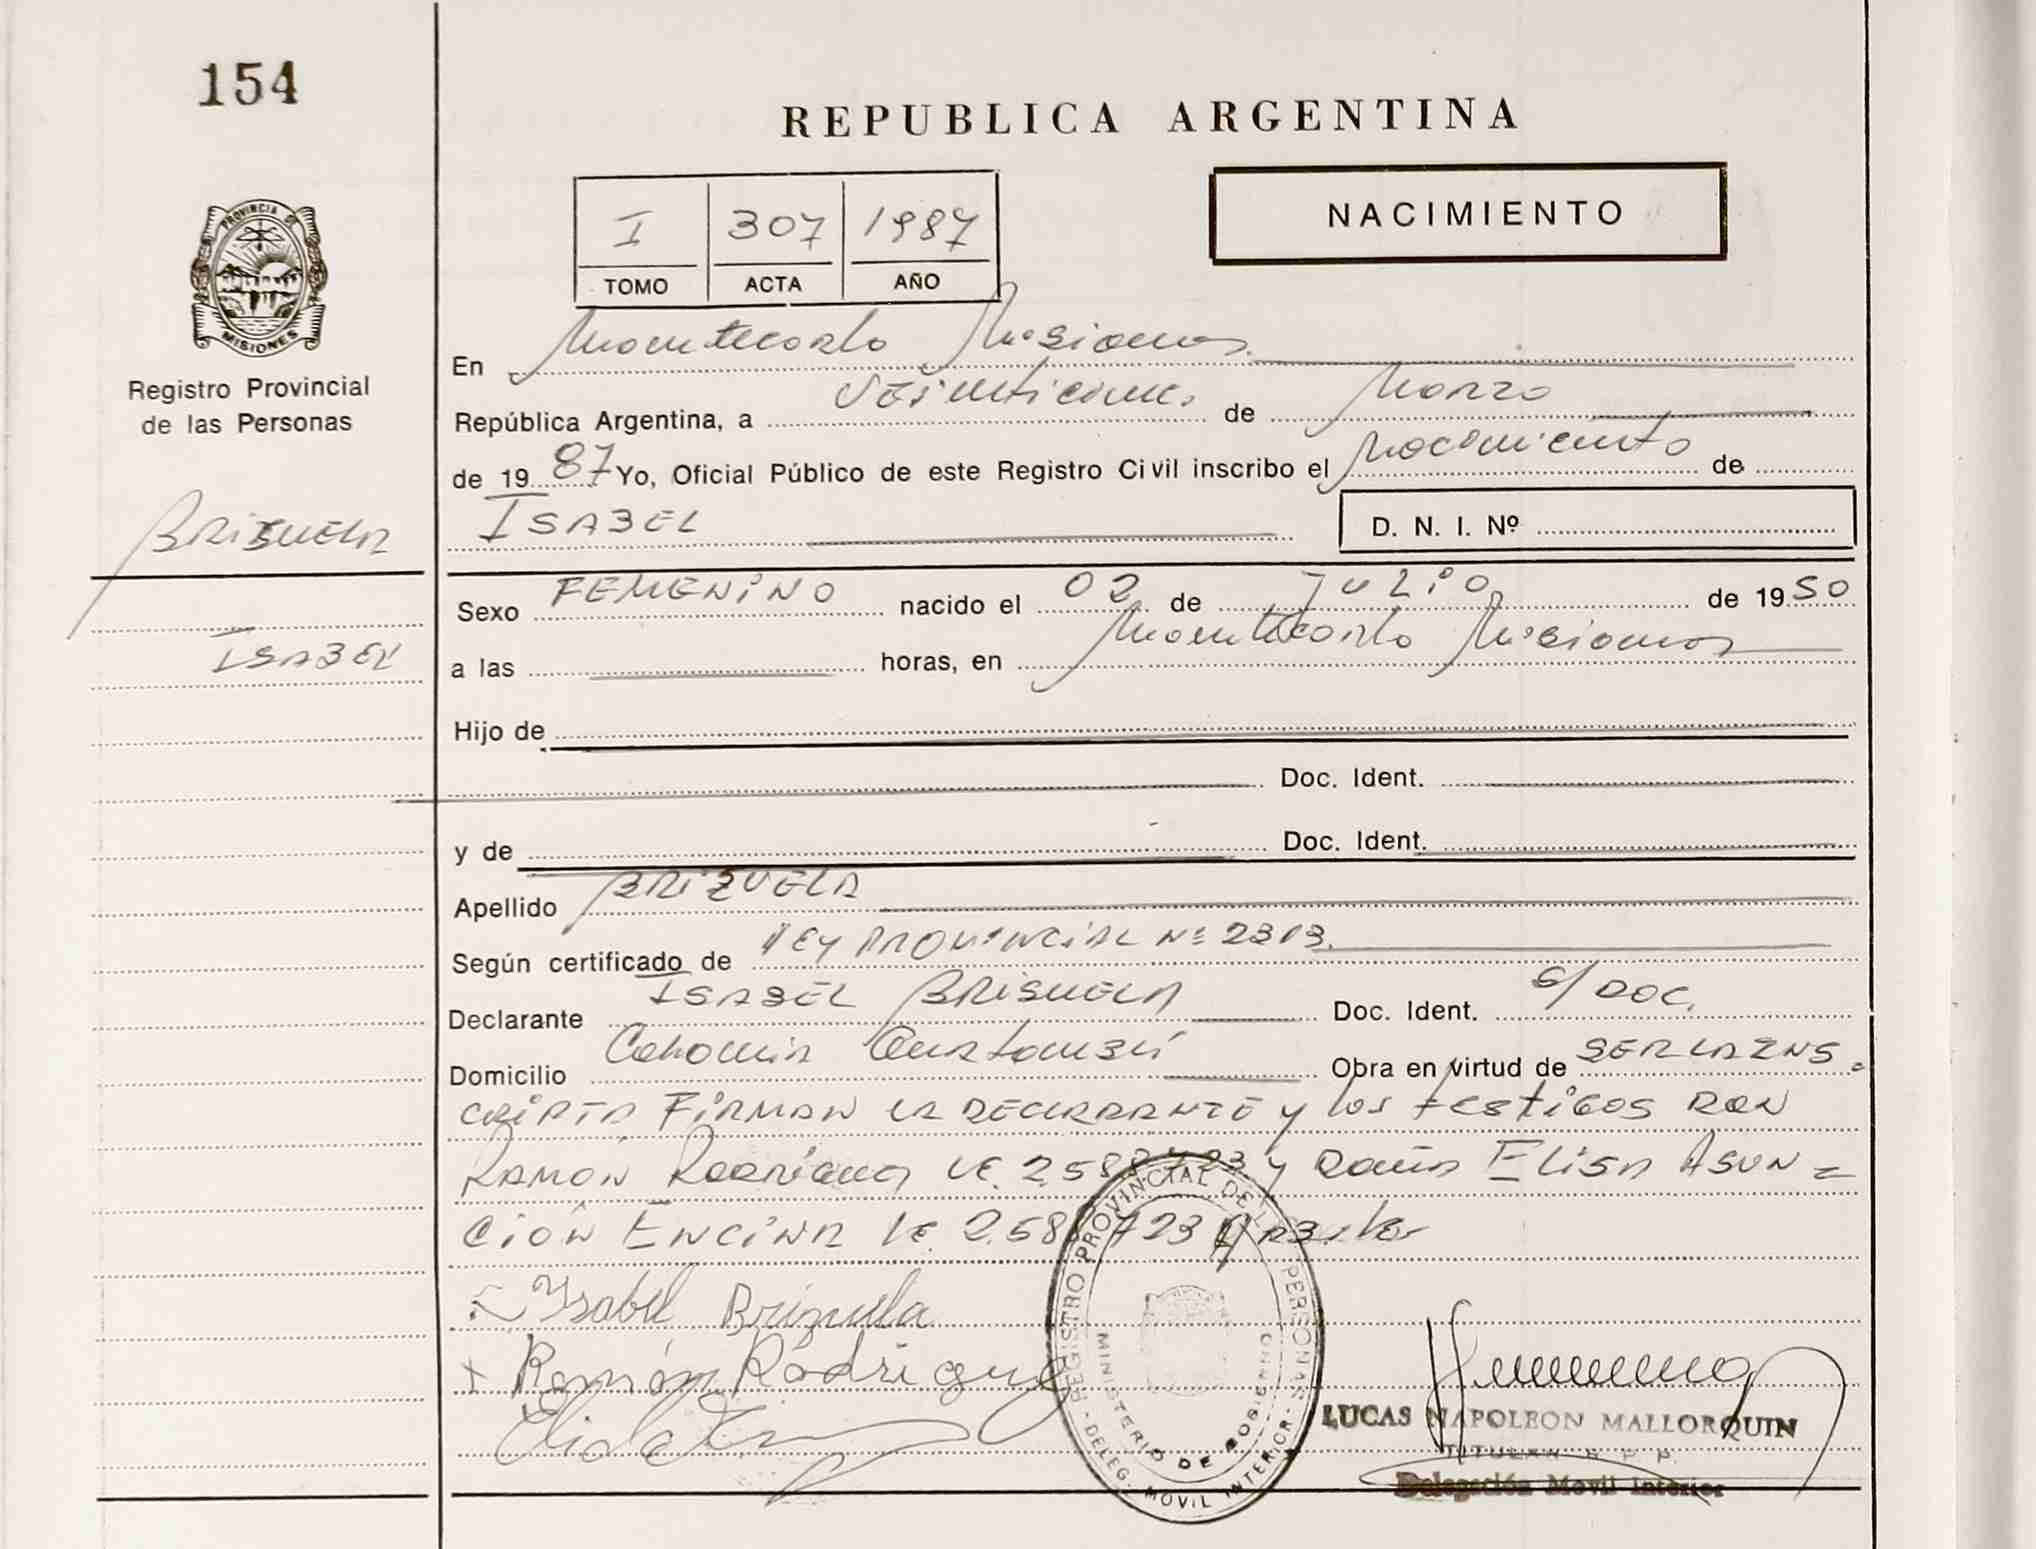 154
REPUBLICA ARGENTINA
NACIMIENTO
I 307 1987
TOMO ACTA AÑO
PROVINCIA DE MISIONES
Registro Provincial
de las Personas
BRISUELA
ISABEL
En Montecarlo Misiones
República Argentina, a Veinticinco de Marzo
de 1987 Yo, Oficial Público de este Registro Civil inscribo el Nacimiento de
ISABEL D. N. I. Nº
Sexo FEMENINO nacido el 02 de JULIO de 1950
a las horas, en Montecarlo Misiones
Hijo de
Doc. Ident.
y de Doc. Ident.
Apellido BRIZUELA
Según certificado de LEY PROVINCIAL Nº 2303
Declarante ISABEL BRISUELA Doc. Ident. S/ DOC.
Domicilio Colonia Guatambú Obra en virtud de SER LA INS-
CRIPTA FIRMAN LA DECLARANTE y los testigos DON
RAMÓN LE. y Doña ELISA ASUN=
CIÓN ENCINA LE.
Ysabel Brizuela
+ Ramón Rodrigue
REGISTRO PROVINCIAL DE LAS PERSONAS - DELEG. MOVIL INTERIOR -
MINISTERIO DE GOBIERNO
LUCAS NAPOLEON MALLORQUIN
TITULAR R. P. P.
Delegación Movil Interior